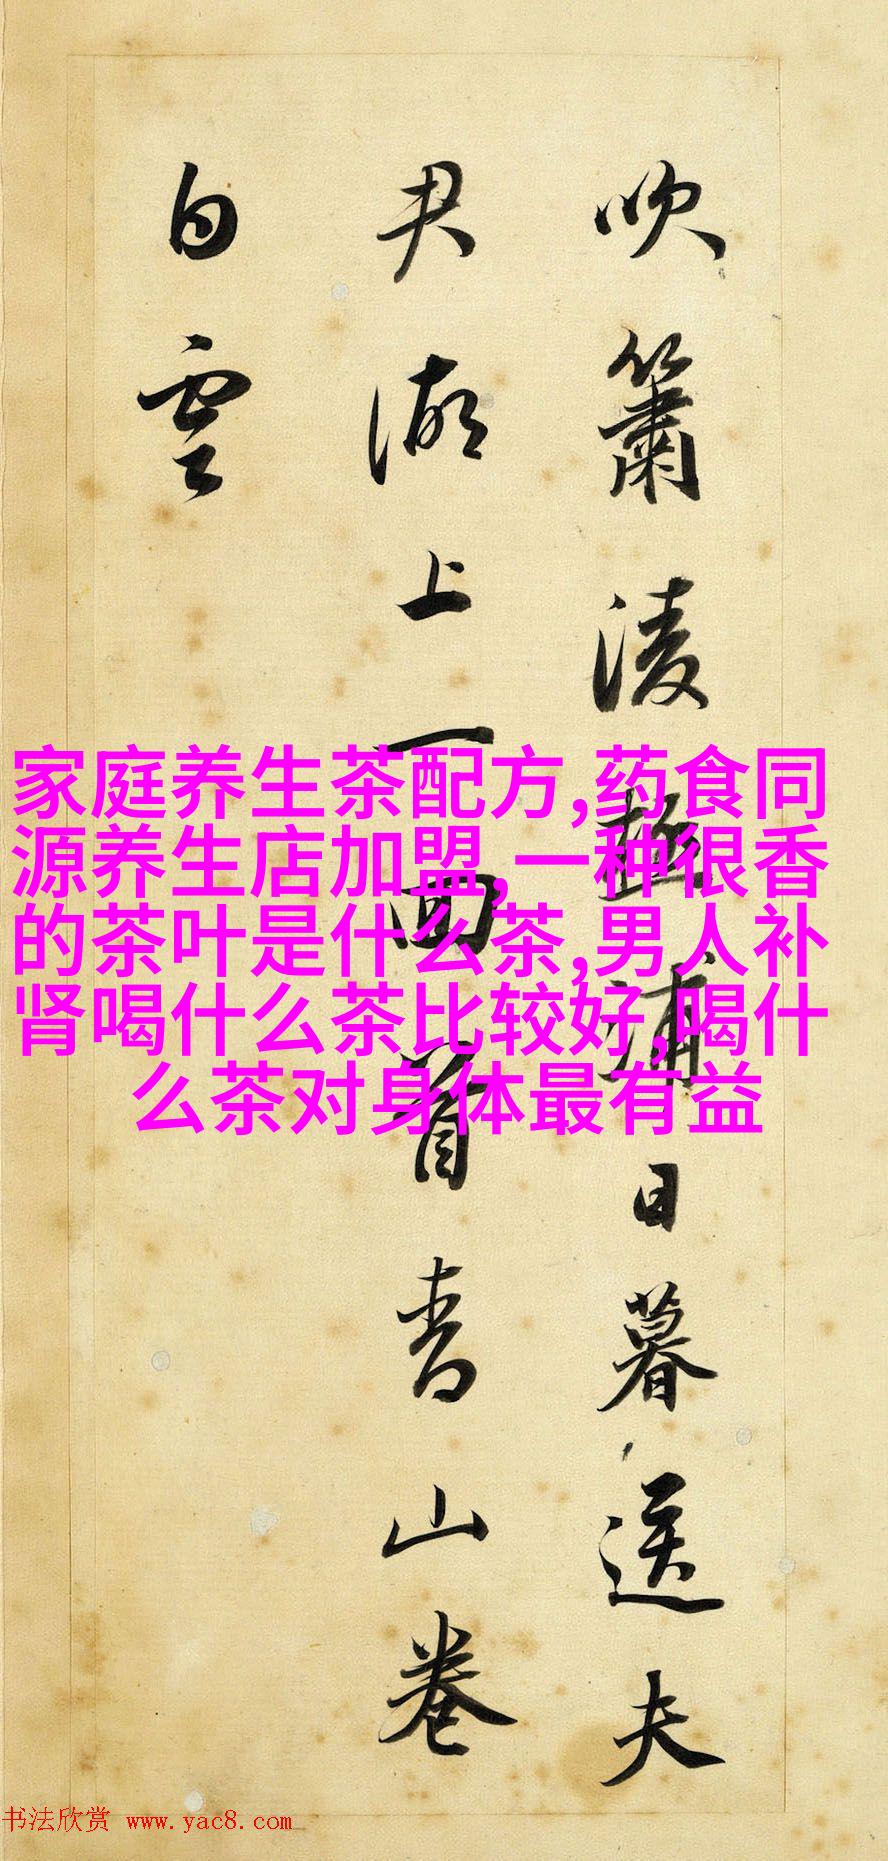 吹簫淩極浦日暮送夫
君湖上一回首青山卷
白雲
家庭养生茶配方,药食同
源养生店加盟,一种很香
的茶叶是什么茶,男人补
肾喝什么茶比较好,喝什
么茶对身体最有益
书法欣赏 www.yac8.com